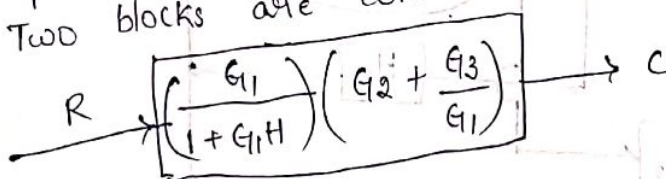 Two blocks are
R (G1 / 1 + G1H) (G2 + G3 / G1) C